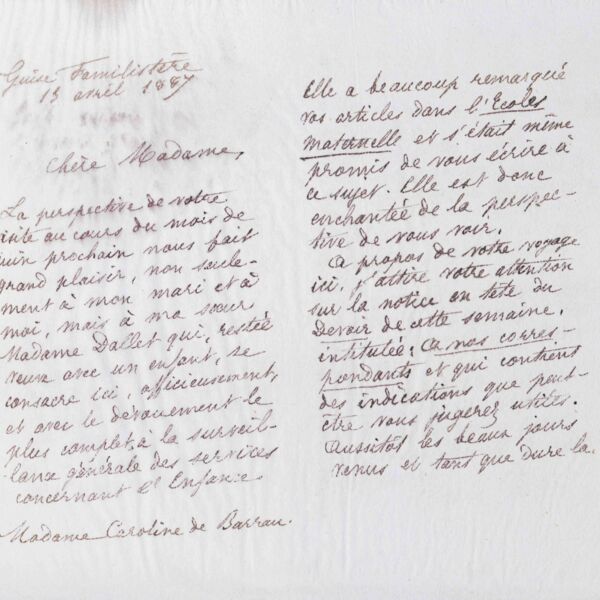 Guise Familistère
13 avril 1887
Chère Madame,
La perspective de votre
visite au cours du mois de
juin prochain nous fait
grand plaisir, non seule-
ment à mon mari et à
moi, mais à ma sœur
Madame Dallet qui, restée
veuve avec un enfant, se
consacre ici, officieusement,
et avec le dévouement le
plus complet à la surveil-
lance générale des services
concernant l'Enfance
Madame Caroline de Barrau.
Elle a beaucoup remarqué
vos articles dans l'Ecoles
maternelle et s'était même
promis de vous écrire à
ce sujet. Elle est donc
enchantée de la perspec-
tive de vous voir.
A propos de votre voyage
ici, j'attire votre attention
sur la notice en tête du
Devoir de cette semaine,
intitulée: A nos corres-
pondants et qui contient
des indications que peut-
être vous jugerez utiles.
Aussitôt les beaux jours
venus et tant que dure la